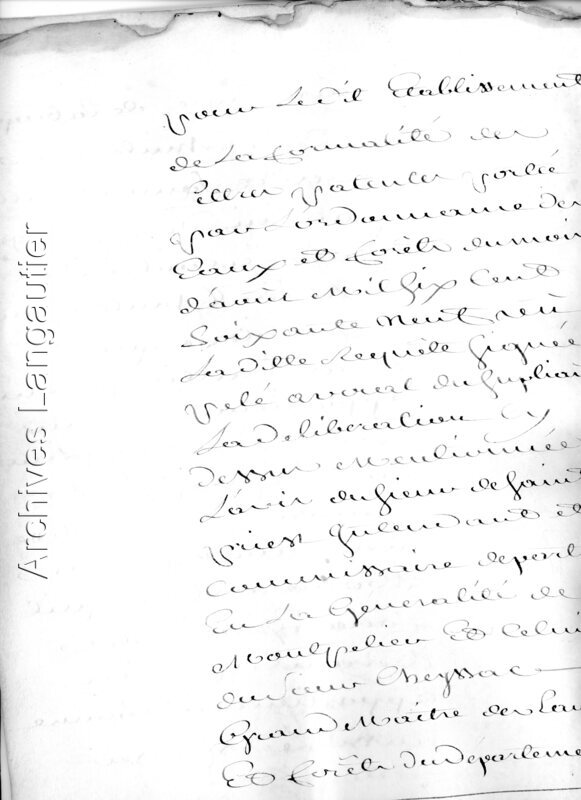 pour Ledit Etablissement
de La formalité des
Lettres patentes portée
par L'ordonnance des
Eaux et forêts du mois
d'aout Mil Six Cent
Soixante Neuf vû
Laditte Requête Signée
pelé avocat du Suplian
La deliberation Cy
dessus Mentionnée
L'avis du Sieur de Saint
priest Intendant et
Commissaire departi
En La Generalité de
Montpelier Et Celui
du Sieur Cheyssac
Grand Maitre des Eau
Et forêts du Départeme
Archives Langautier